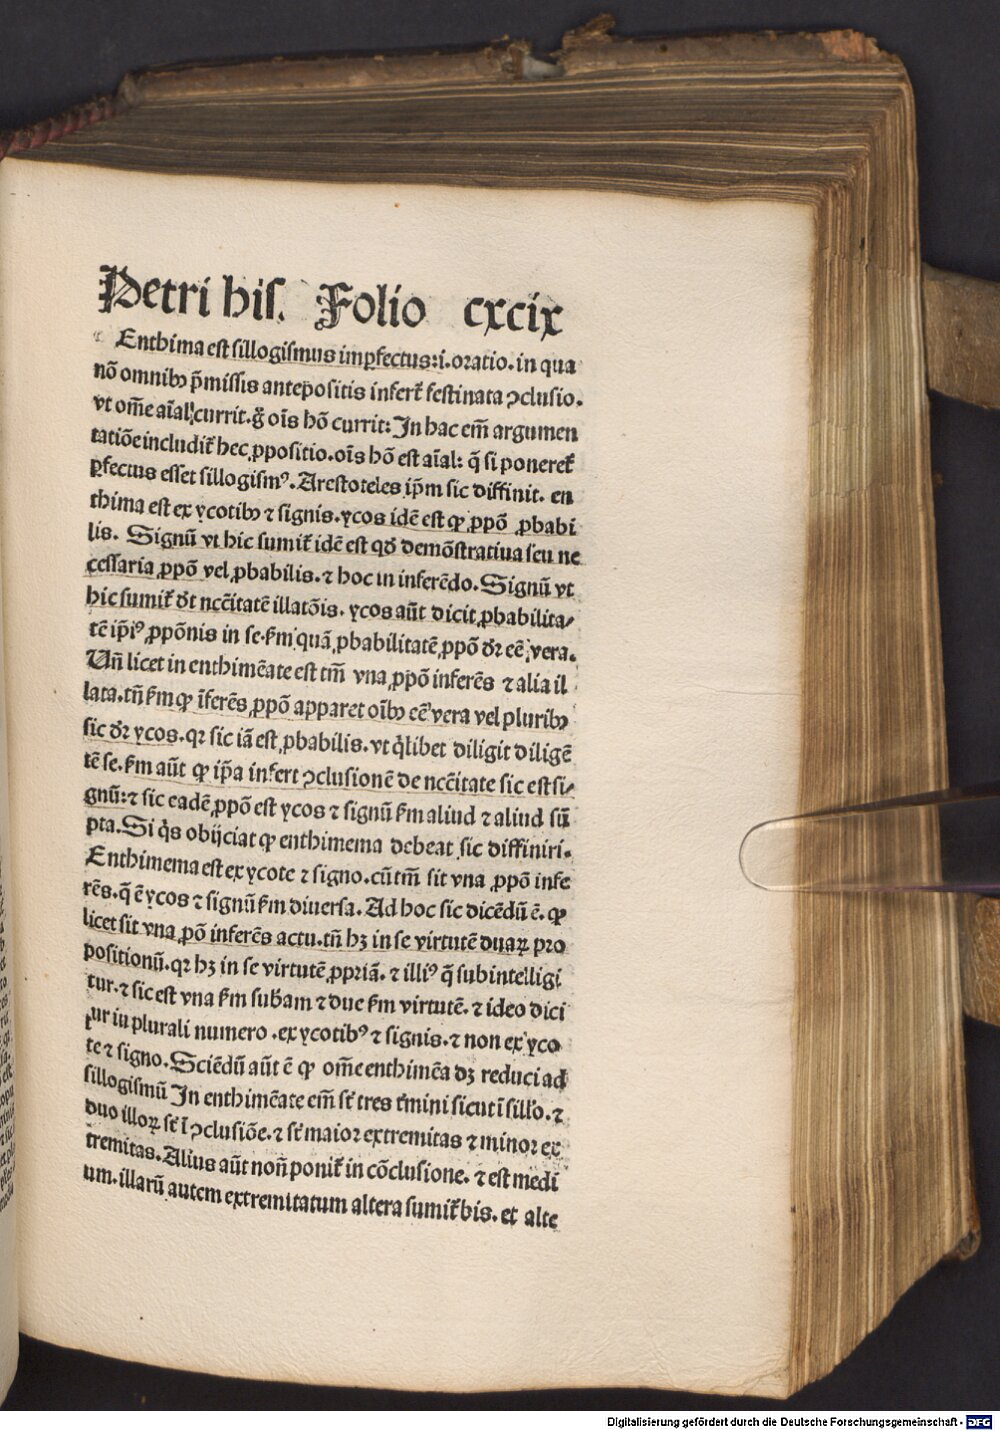 Petri hiſ. Folio cxcix
Enthima eſt ſillogiſmus imꝑfectus:i.oratio.in qua
nō omnibꝰ p̄miſſis antepoſitis infert᷑ feſtinata ꝯcluſio.
vt om̄e aīal currit.gͦ oīs hō currit: In hac em̄ argumen
tatiōe includit᷑ hec ꝓpoſitio.oīs hō eſt aīal: q̄ ſi poneret᷑
ꝑfectus eſſet ſillogiſmꝰ. Areſtoteles ip̄m ſic diffinit. en
thima eſt ex ycotibꝰ ⁊ ſignis.ycos idē eſt qꝙ ꝓpō ꝓbabi
lis. Signū vt hic ſumit᷑ idē eſt qd̓ demōſtratiua ſeu ne
ceſſaria ꝓpō vel ꝓbabilis.⁊ hoc in inferēdo. Signū vt
hic ſumit᷑ dr̄t nccītatē illatōis. ycos aūt dicit ꝓbabilita⸗
tē ip̄iꝰ ꝓpōnis in ſe.ẜm quā ꝓbabilitatē ꝓpō dr̄ eē vera.
Un̄ licet in enthimēate eſt tm̄ vna ꝓpō inferēs ⁊ alia il
lata.tn̄ ẜm ꝙ īferēs ꝓpō apparet oībꝰ eē vera vel pluribꝰ
ſic dr̄ ycos.qꝛ ſic iā eſt ꝓbabilis.vt q̇libet diligit diligē
tē ſe.ẜm aūt ꝙ ip̄a infert ꝯcluſionē de nccītate ſic eſt ſi⸗
gnū:⁊ ſic eadē ꝓpō eſt ycos ⁊ ſignū ẜm aliud ⁊ aliud ſū
pta. Si q̇s obijciat ꝙ enthimema debeat ſic diffiniri.
Enthimema eſt ex ycote ⁊ ſigno.cū tm̄ ſit vna ꝓpō infe
rēs.q̄ ē ycos ⁊ ſignū ẜm diuerſa. Ad hoc ſic dicēdū ē. ꝙ
licet ſit vna ꝓpō inferēs actu.tn̄ hꝫ in ſe virtutē duaꝝ pro
poſitionū.qꝛ hꝫ in ſe virtutē ꝓpriā. ⁊ illiꝰ q̄ ſubintelligi
tur.⁊ ſic eſt vna ẜm ſub̄am ⁊ due ẜm virtutē. ⁊ ideo dici
tur in plurali numero .ex ycotibꝰ ⁊ ſignis.⁊ non ex yco
te ⁊ ſigno. Sciēdū aūt ē ꝙ om̄e enthimēa dꝫ reduci ad
ſillogiſmū In enthimēate em̄ ſt̄ tres t̄mini ſicut ī ſillo.⁊
duo illoꝝ ſt̄ ī ꝯcluſiōe.⁊ ſt̄ maior extremitas ⁊ minor ex
tremitas. Alius aūt non̄ ponit᷑ in cōcluſione. ⁊ eſt medi
um.illarū autem extremitatum altera ſumit᷑ bis. et alte
Digitalisierung gefördert durch die Deutsche Forschungsgemeinschaft - DFG